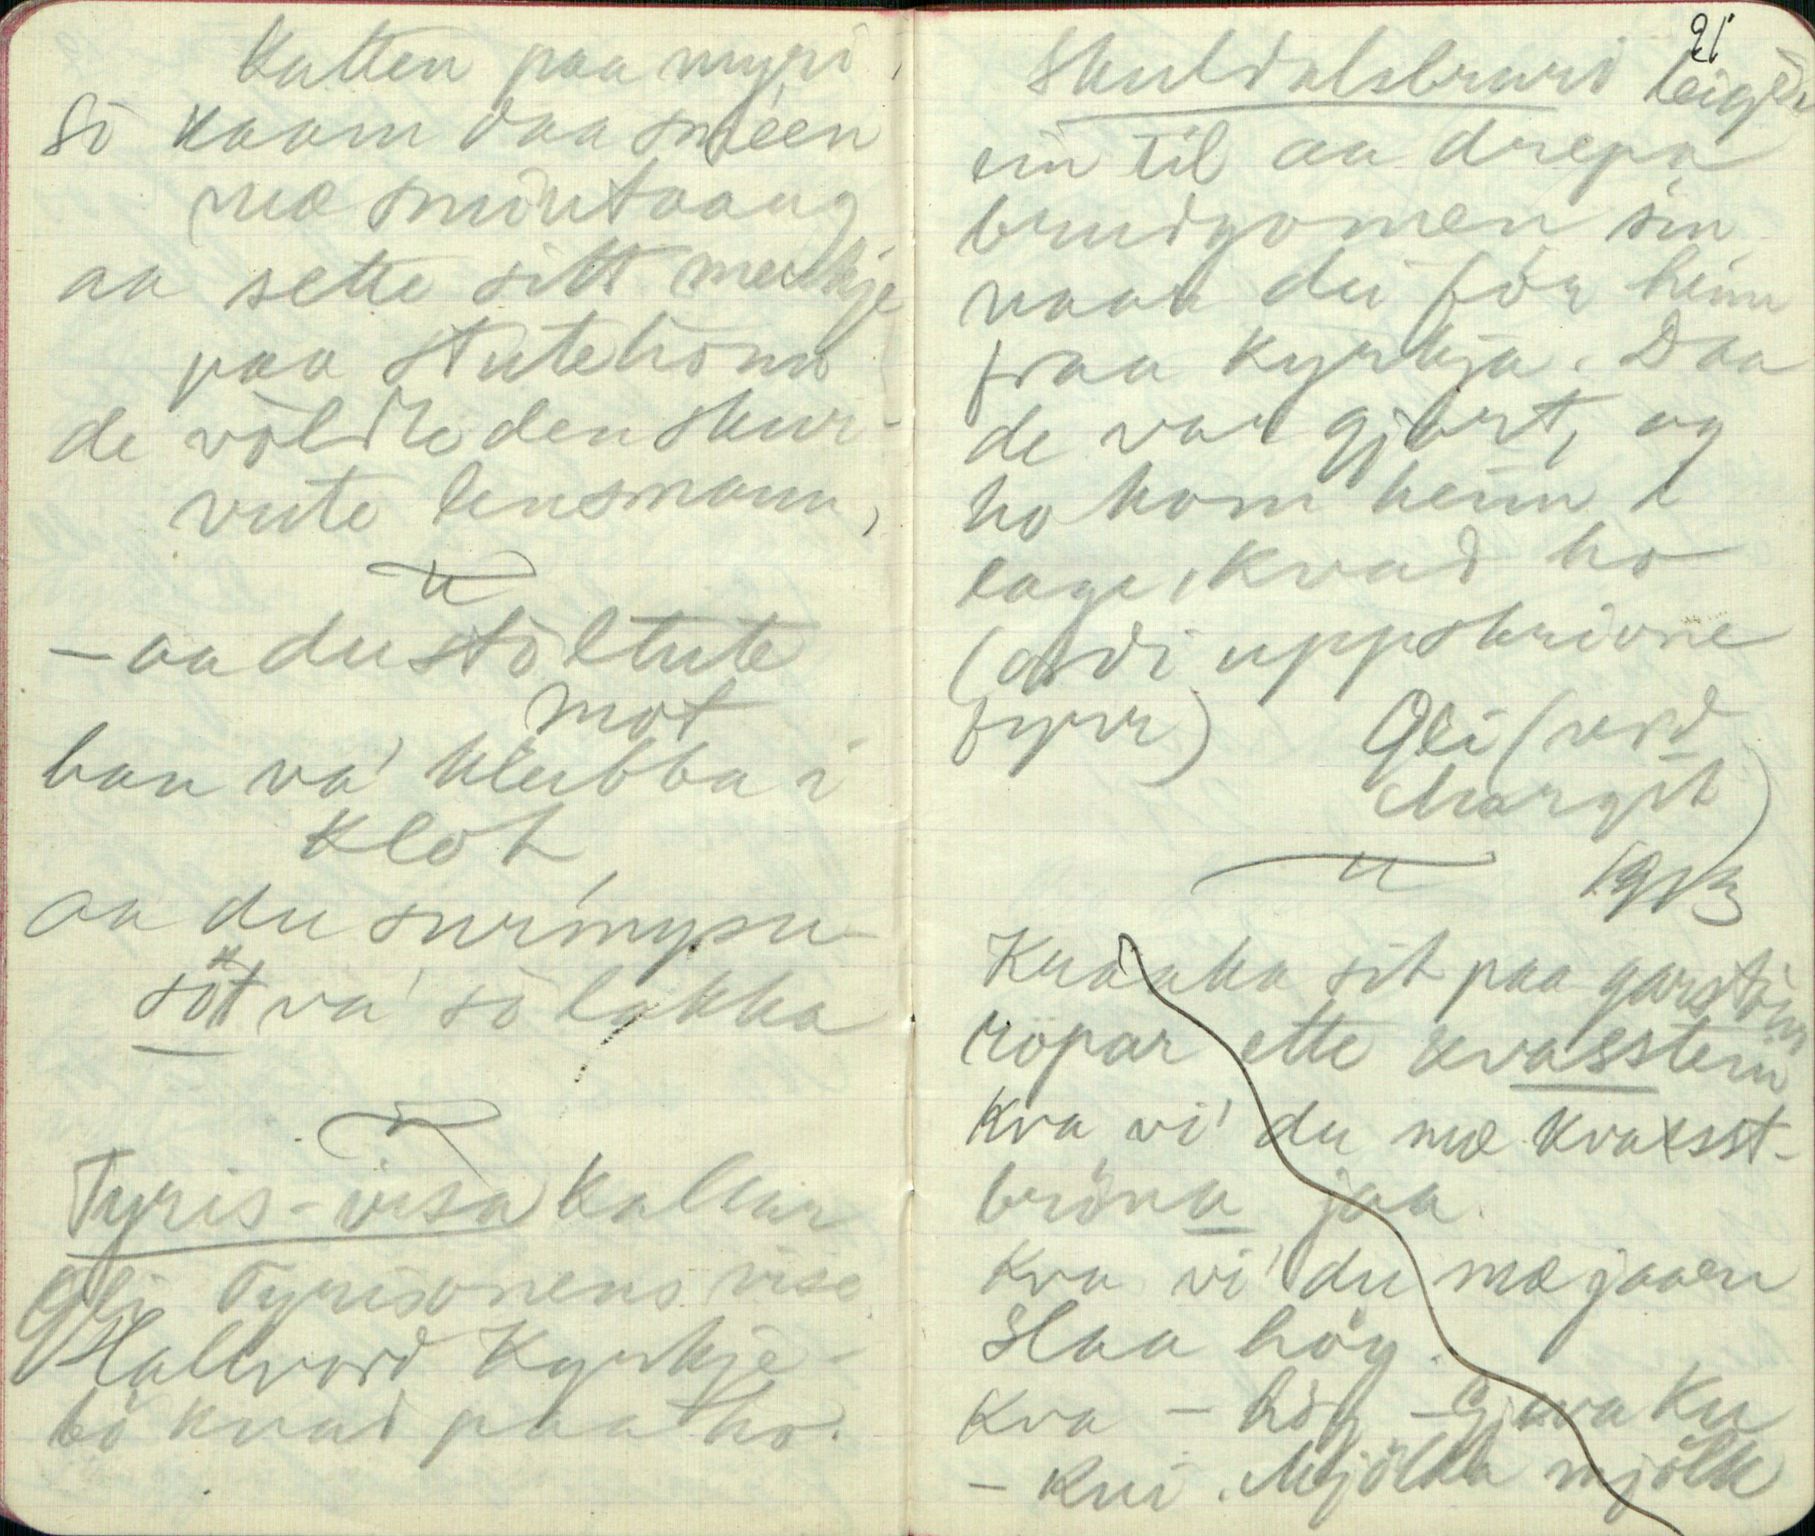 Katten paa myri
So kaam daa sméen
mæ smiutaang
aa sette sitt merkje
paa stutehonn
de völdte den skur-
vute lensmann,
— aa du stöltute
mot
han va' klubba i
Klot
aa du surmysu
söt va' so lakka
Tyris-visa kallar
Gli Tyrisonens vise
Hallvord Kyrkje-
bö kvad paa ho.
21
Skuldalsbruri leigde
ein til aa drepa
brudgomen sin
naar dei för heim
fraa Kyrkja. Daa
de var gjort, og
ho kom heim i
lage, kvad ho
(ordi uppskrivne
fyrr) Gli (ved
Margit)
1913
Kraaka sit paa garstöur
röpar ette kvasstein
Kva vi' du mæ kvasst-
bröna jaa.
Kva vi' du mæ jaaen
slaa höy.
Kva — höy — Gjeva Ku
— Kui. Mjölka mjölk